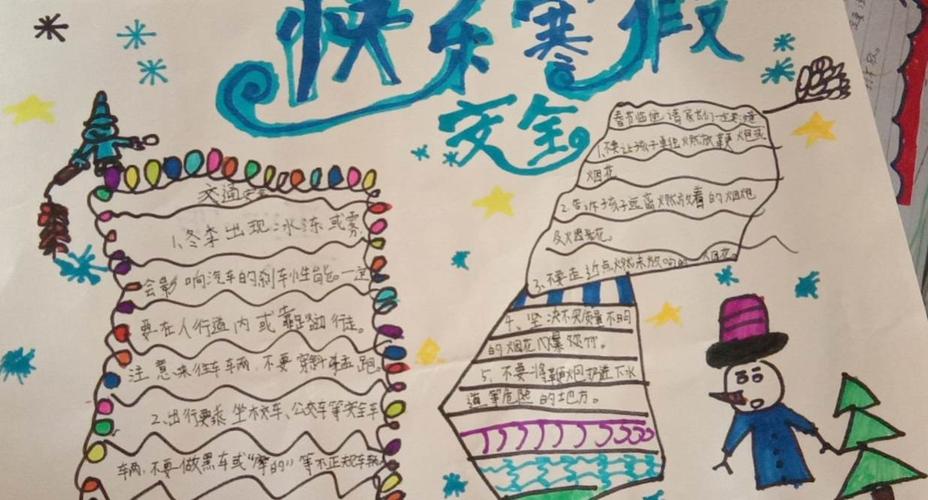 快乐寒假
安全
交通安全
1.冬季出现冰冻或雾,
会影响汽车的刹车性能一定
要在人行道内或靠路边行走。
注意来往车辆,不要穿斜猛跑。
2.出行要乘坐校车、公交车等安全车
车辆,不要做黑车或“摩的”等不正规车辆
春节临近,请家长们一定
1.不要让孩子单独燃放鞭炮或
烟花。
2.告诉孩子远离燃放着的烟炮
及烟花。
3.不要走近点燃未放响的烟花。
4、坚决不买质量不明
的烟花及爆竹。
5、不要将鞭炮扔进下水
道等危险的地方。